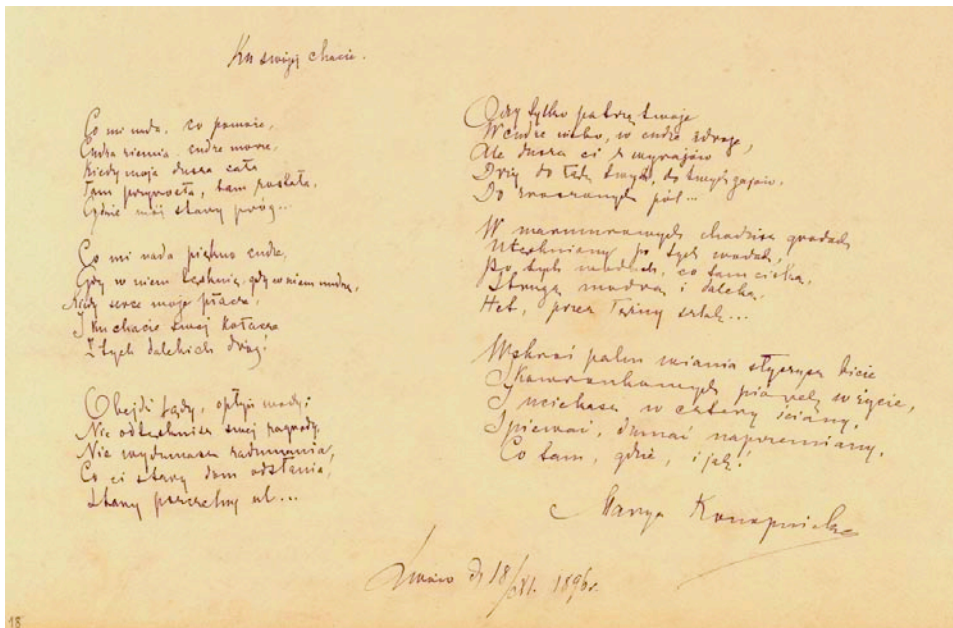 Ku swojej chacie.
Co mi nada, co pomoże,
Cudza ziemia, cudze morze,
Kiedy moja dusza cała
Tam przyrosła, tam została,
Gdzie mój stary próg...
Co mi nada piękno cudze,
Gdy w niem tęsknię, gdy w niem nudzę,
Kiedy serce moje płacze,
I ku chacie swej kołacze
Z tych dalekich dróg!
Obejdź lądy, opłyń wody,
Nie odtęsknisz swej zagrody,
Nie wydumasz zadumania,
Co ci stary dom odsłania,
Stary pszczelny ul...
Oczy tylko patrzą twoje
W cudze niebo, w cudze zdroje,
Ale dusza ci z wyrajów
Drży do łąk twych, do twych gajów,
Do zaoranych pól...
W marmurowych chodzisz grodach
Utęskniony po tych wodach,
Po tych modrych, co tam cieką,
Strugą modrą i daleką,
Het, przez łężny szlak...
Wskroś palm wiania słyszysz bicie
Skowronkowych piór w życie,
I uciekasz w cztery ściany,
Śpiewać, dumać naprzemiany,
Co tam, gdzie, i jak!
Marya Konopnicka
Lwów d. 18/XI. 1896r.
18